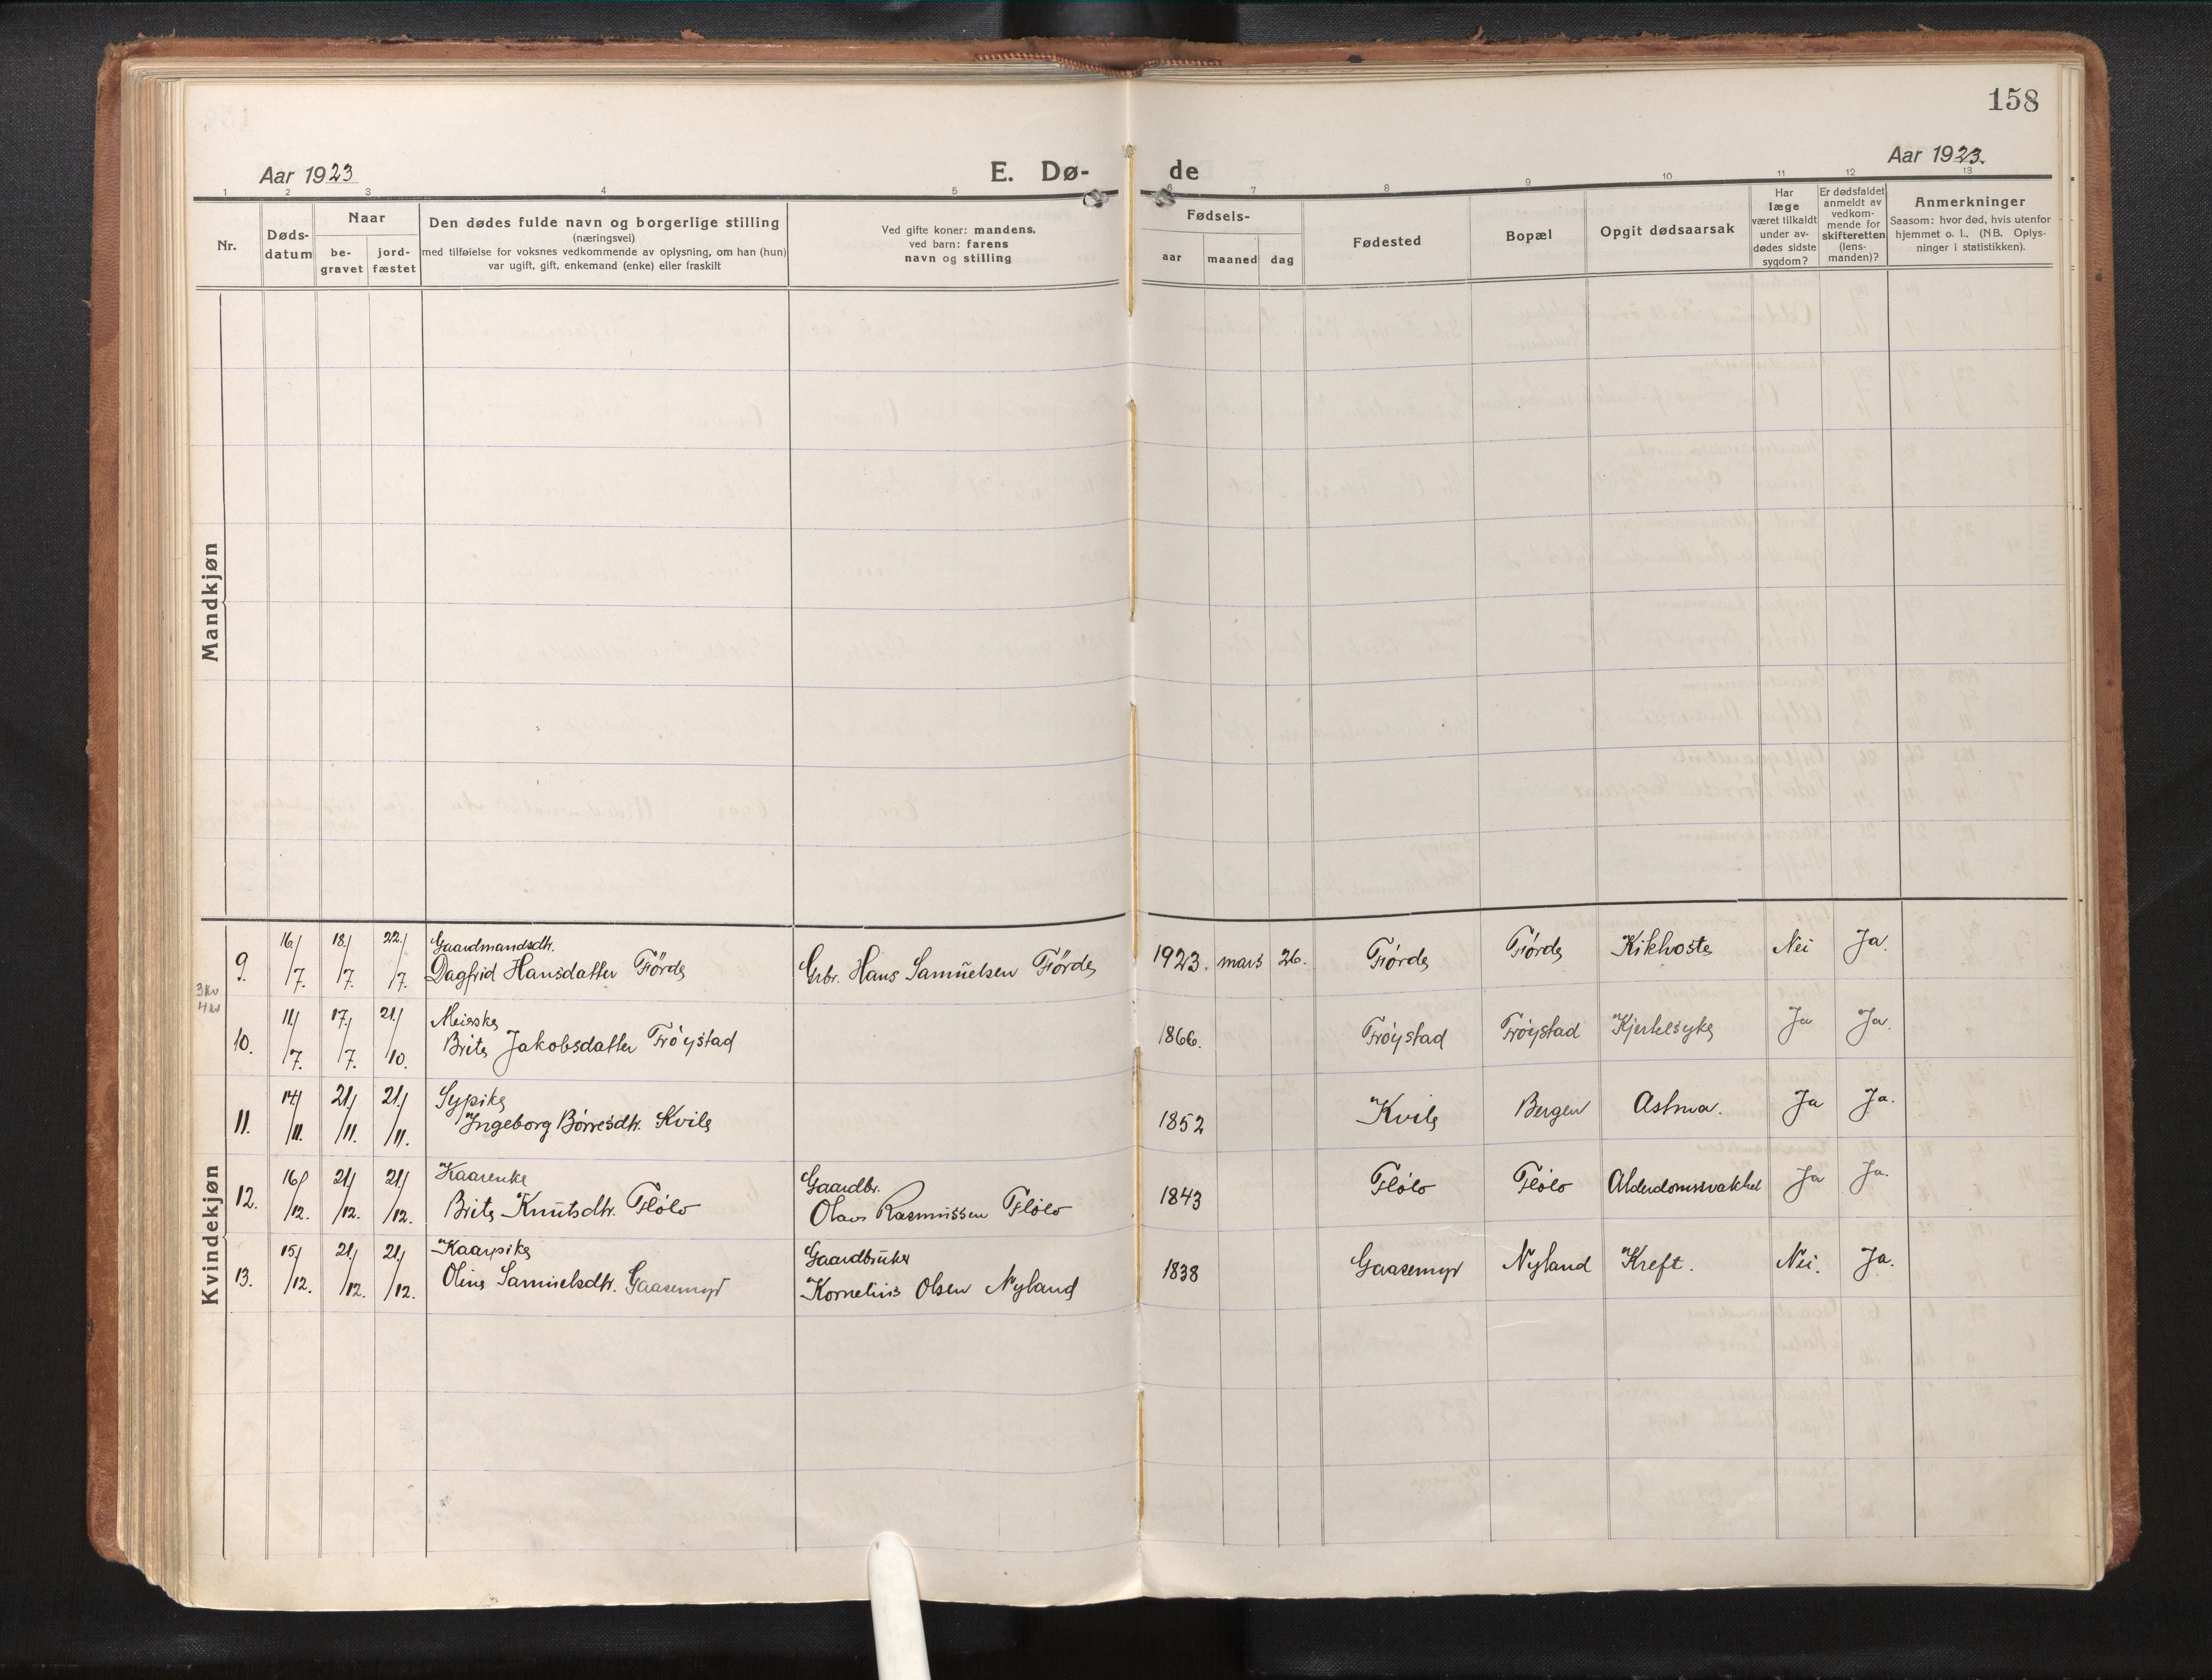 158
Aar 1923
E. Dø-
de
Aar 1923.
1 2 3 4 5 6 7 8 9 10 11 12 13
Nr.
Døds-
datum
Naar
be-
gravet
jord-
fæstet
Den dødes fulde navn og borgerlige stilling
(næringsvei)
med tilføielse for voksnes vedkommende av oplysning, om han (hun)
var ugift, gift, enkemand (enke) eller fraskilt
Ved gifte koner: mandens.
ved barn: farens
navn og stilling
Fødsels-
aar maaned dag
Fødested
Bopæl
Opgit dødsaarsak
Har
læge
været tilkaldt
under av-
dødes sidste
sygdom?
Er dødsfaldet
anmeldt av
vedkom-
mende for
skifteretten
(lens-
manden)?
Anmerkninger
Saasom: hvor død, hvis utenfor
hjemmet o. l.. (NB. Oplys-
ninger i statistikken).
Mandkjøn
Kvindekjøn
Gaardmandsdtr.
9. 16/7. 18/7. 22/7. Dagfrid Hansdatter Førde Grbr. Hans Samuelsen Førde 1923. mars 26. Førde Førde Kikhoste Nei Ja.
3 kv
4 kv
10. 11/7. 17/7. 21/10. Brite Jakobsdatter Frøystad 1866. Frøystad Frøystad Kjertelsyke Ja Ja.
Sypike
11. 14/11. 21/11. 21/11. Ingeborg Børresdtr. Kvile 1852 Kvile Bergen Astma. Ja Ja.
Kaarenke Gaardbr.
12. 16/12. 21/12. 21/12. Brite Knutsdtr. Fløło Olavs Rasmussen Flølo 1843 Flølo Flølo Alderdomssvakhet Ja Ja.
Kaarpike Gaardbruker
13. 15/12. 21/12. 21/12. Oline Samuelsdtr. Gaasemyr Kornelius Olsen Nyland 1838 Gaasemyr Nyland Kreft. Nei. Ja.